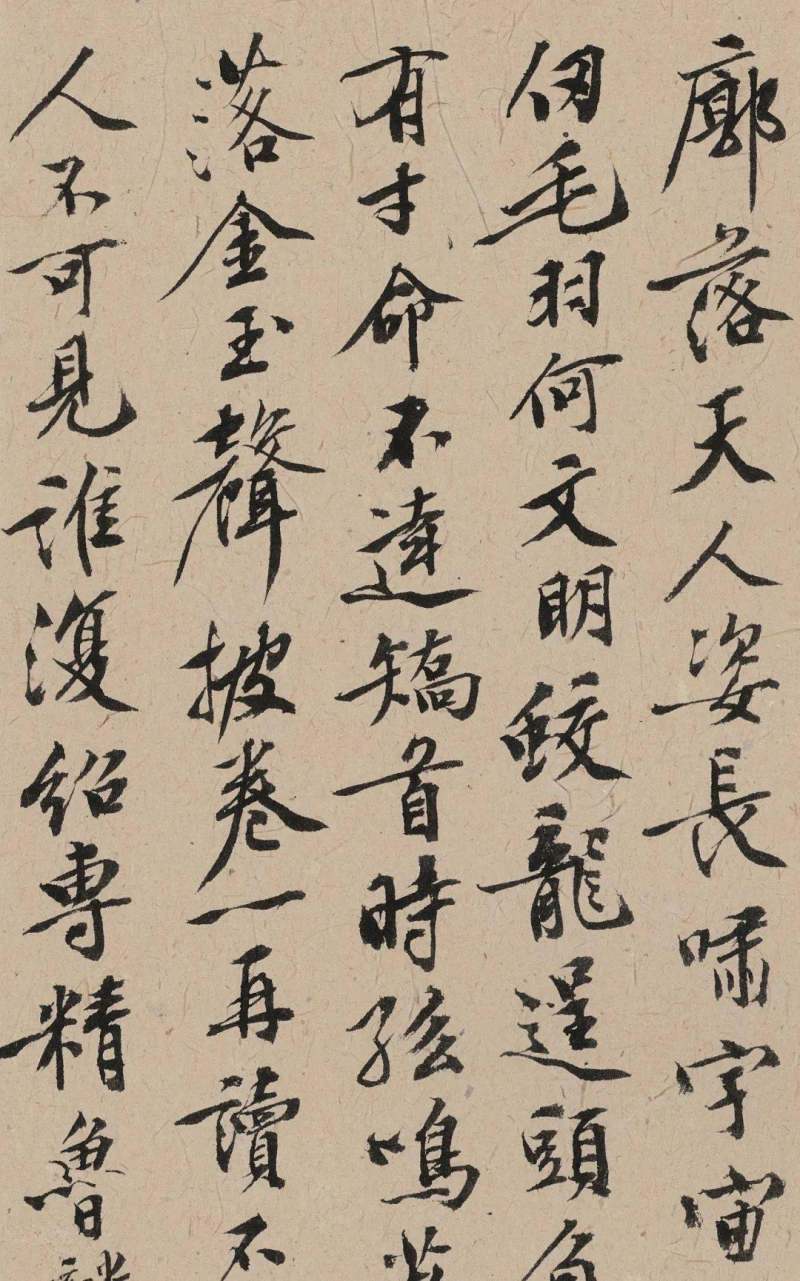 廓落天人姿長嘯宇宙
仞毛羽何文明蛟龍逞頭角
有才命不達矯首時絃鳴
落金玉聲披卷一再讀不
人不可見誰復紹專精魯